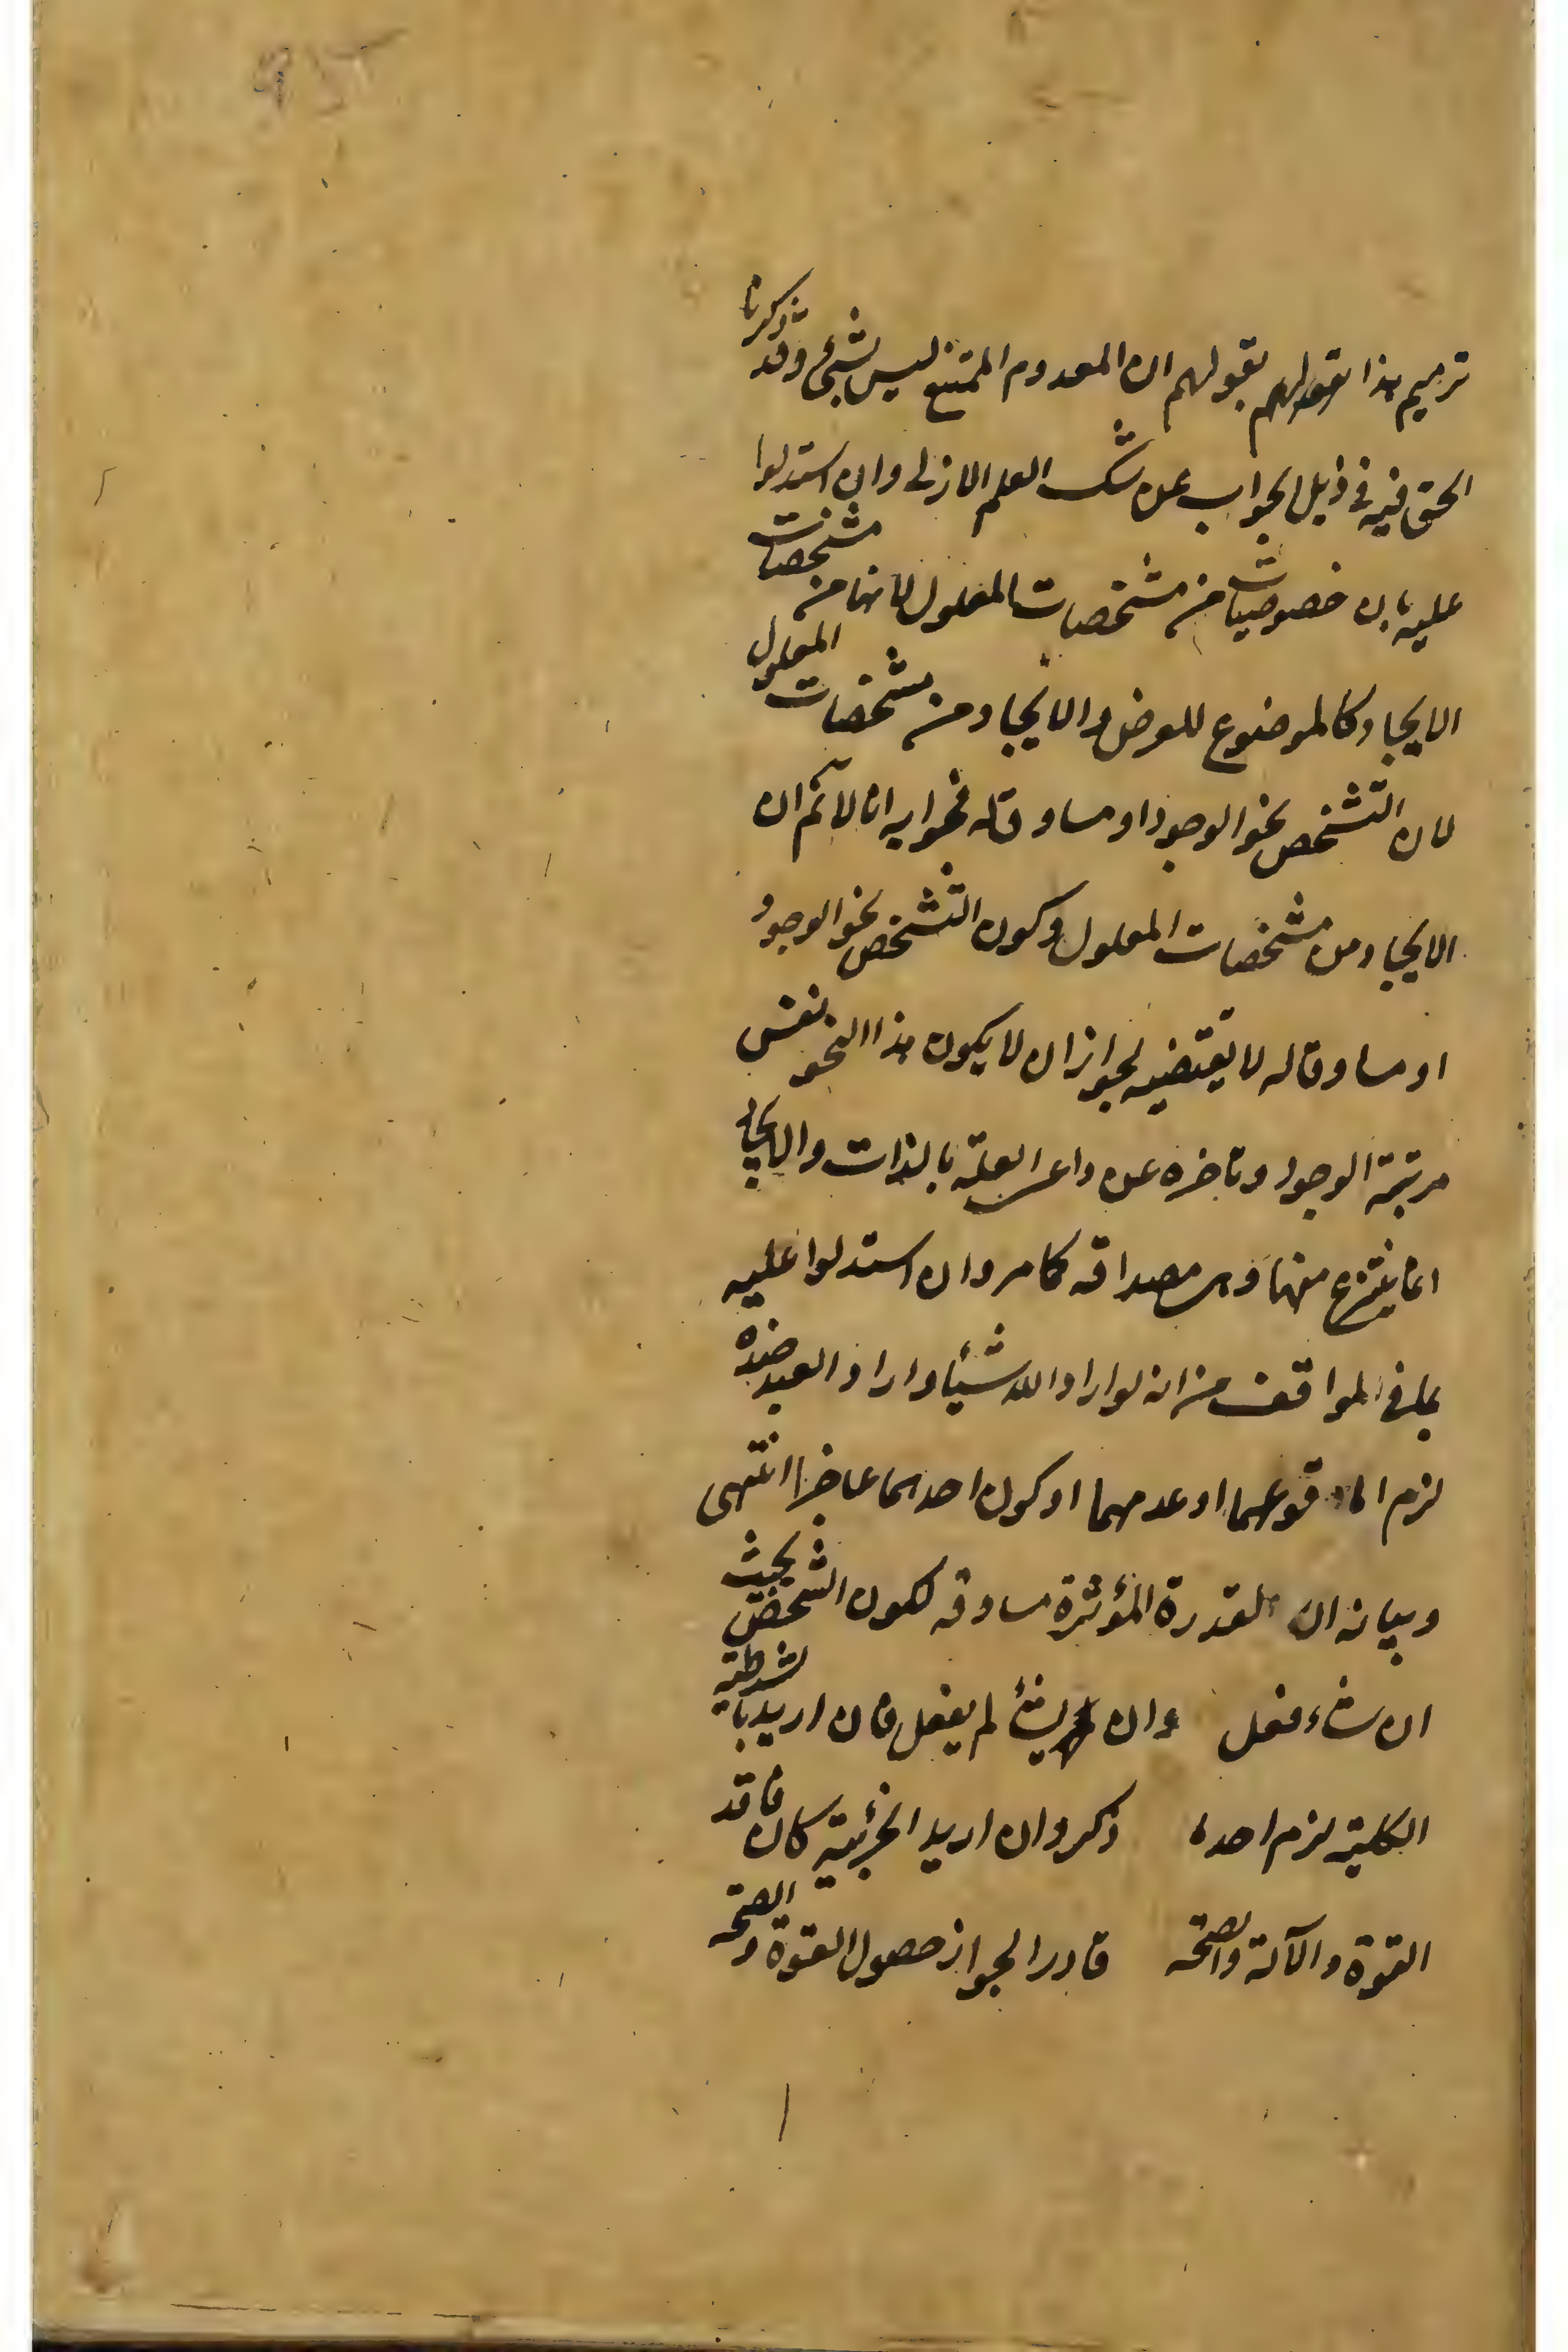 ترميم هذا بقولهم ان المعدوم الممتنع ليس بشئ وقد ذكرنا
الحق فيه فى ذيل الجواب عن شك العلم الازلى وان استدلوا
عليه بان خصوصيات من مشخصات المعلول لانها من مشخصات
الايجاد كالموضوع للعرض والايجاد من مشخصات المعلول
لان التشخص نحو الوجود او مساوق له فجوابه انا لا نم ان
الايجاد من مشخصات المعلول وكون التشخص نحو الوجود
او مساوقا له لا يقتضيه لجواز ان لا يكون هذا النحو نفس
مرتبة الوجود وتاخره عن العلة بالذات والايجاد
انما ينتزع منها وهى مصداقه كما مر وان استدلوا عليه
بما فى المواقف من انه لو اراد الله شيئا واراد العبد ضده
لزم اما وقوعهما او عدمهما او كون احدهما عاجزا انتهى
وبيانه ان القدرة المؤثرة مساوقه لكون الشخص بحيث
ان شاء فعل وان لم يشأ لم يفعل فان اريد بالشرطية
الكلية لزم احد ما ذكر وان اريد الجزئية كان فاقد
القوة والآلة والصحة قادرا لجواز حصول القوة والصحة